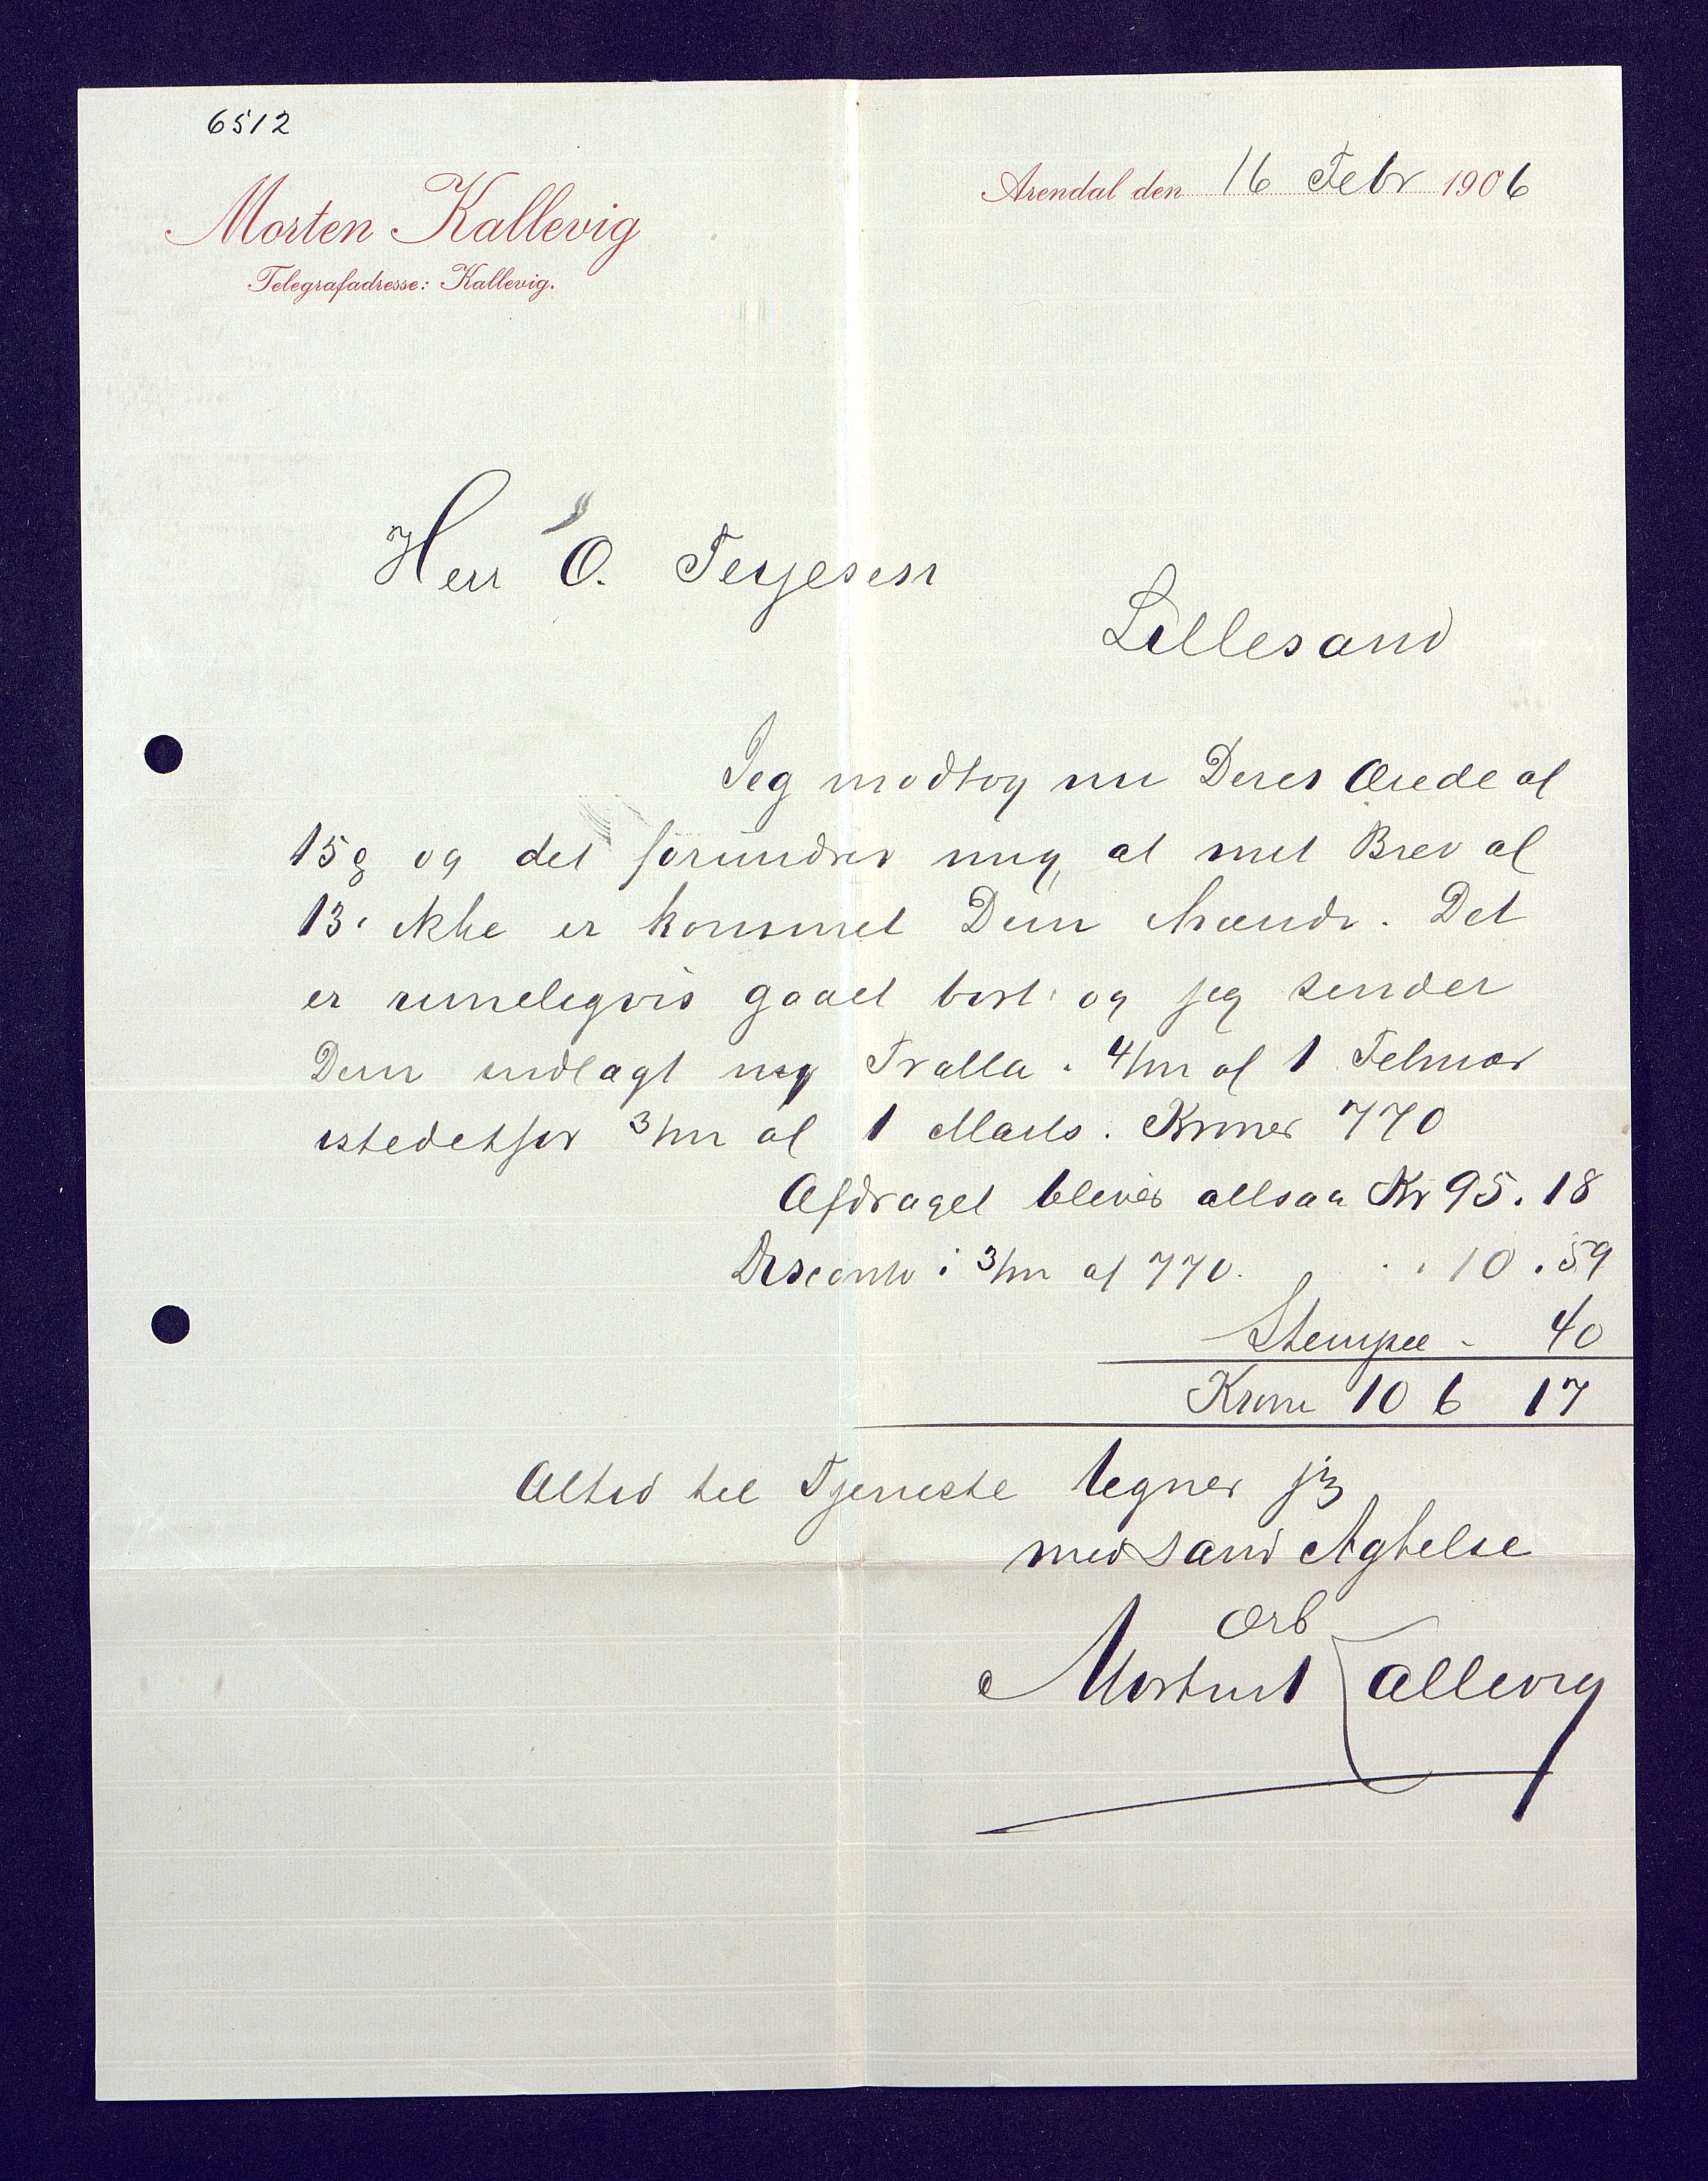 6512
Morten Kallevig
Telegrafadresse: Kallevig.
Arendal den 16 Febr 1906
Herr O. Terjesen
Lillesand
Jeg modtog nu Deres Ærede af
15de og det forundrer mig, at mit Brev af
13. ikke er kommet Dem ihænde. Det
er rimeligvis gaaet bort og jeg sender
Dem indlagt ny Tratta. 4/m af 1 Februar
istedetfor 3/m af 1 Marts. Kroner 770
Afdraget bliver altsaa Kr 95.18
Disconto i 3/m af 770. . . 10.59
Stempel - 40
Krone 106 17
Altid til Tjeneste tegner jeg
med sand Agtelse
Ærb
Morten Kallevig